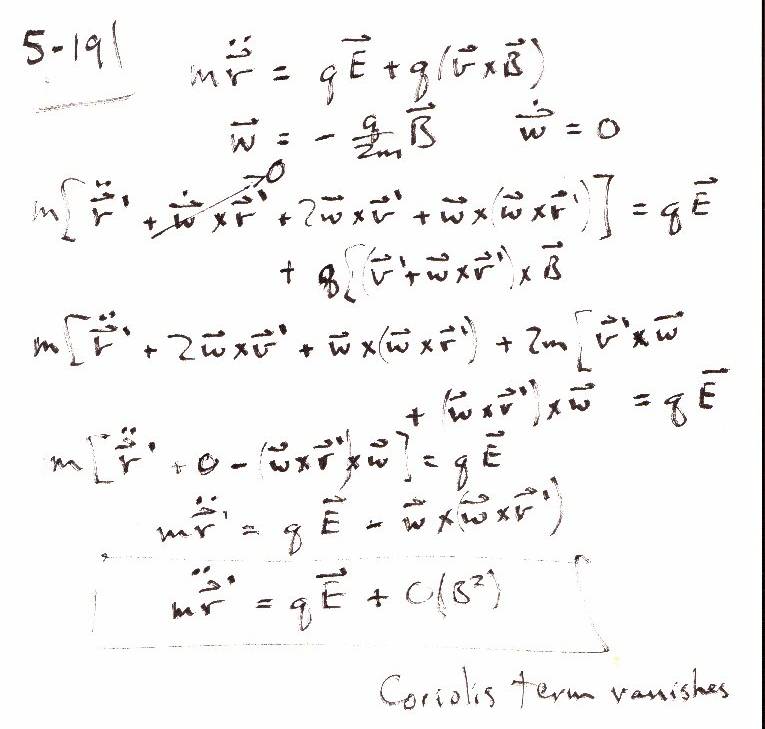 5-19
m r̈⃗ = qE⃗ + q(v⃗ × B⃗)
w⃗ = - q/2m B⃗    ẇ⃗ = 0
m[r̈⃗' + ẇ⃗ × r⃗' → 0 + 2w⃗ × v⃗' + w⃗ × (w⃗ × r⃗')] = qE⃗
+ q[(v⃗' + w⃗ × r⃗') × B⃗
m[r̈⃗' + 2w⃗ × v⃗' + w⃗ × (w⃗ × r⃗') + 2m[v⃗' × w⃗
+ (w⃗ × r⃗') × w⃗ = qE⃗
m[r̈⃗' + 0 - (w⃗ × r⃗') × w⃗] = qE⃗
m r̈⃗' = qE⃗ - w⃗ × (w⃗ × r⃗')
m r̈⃗' = qE⃗ + O(B²)
Coriolis term vanishes